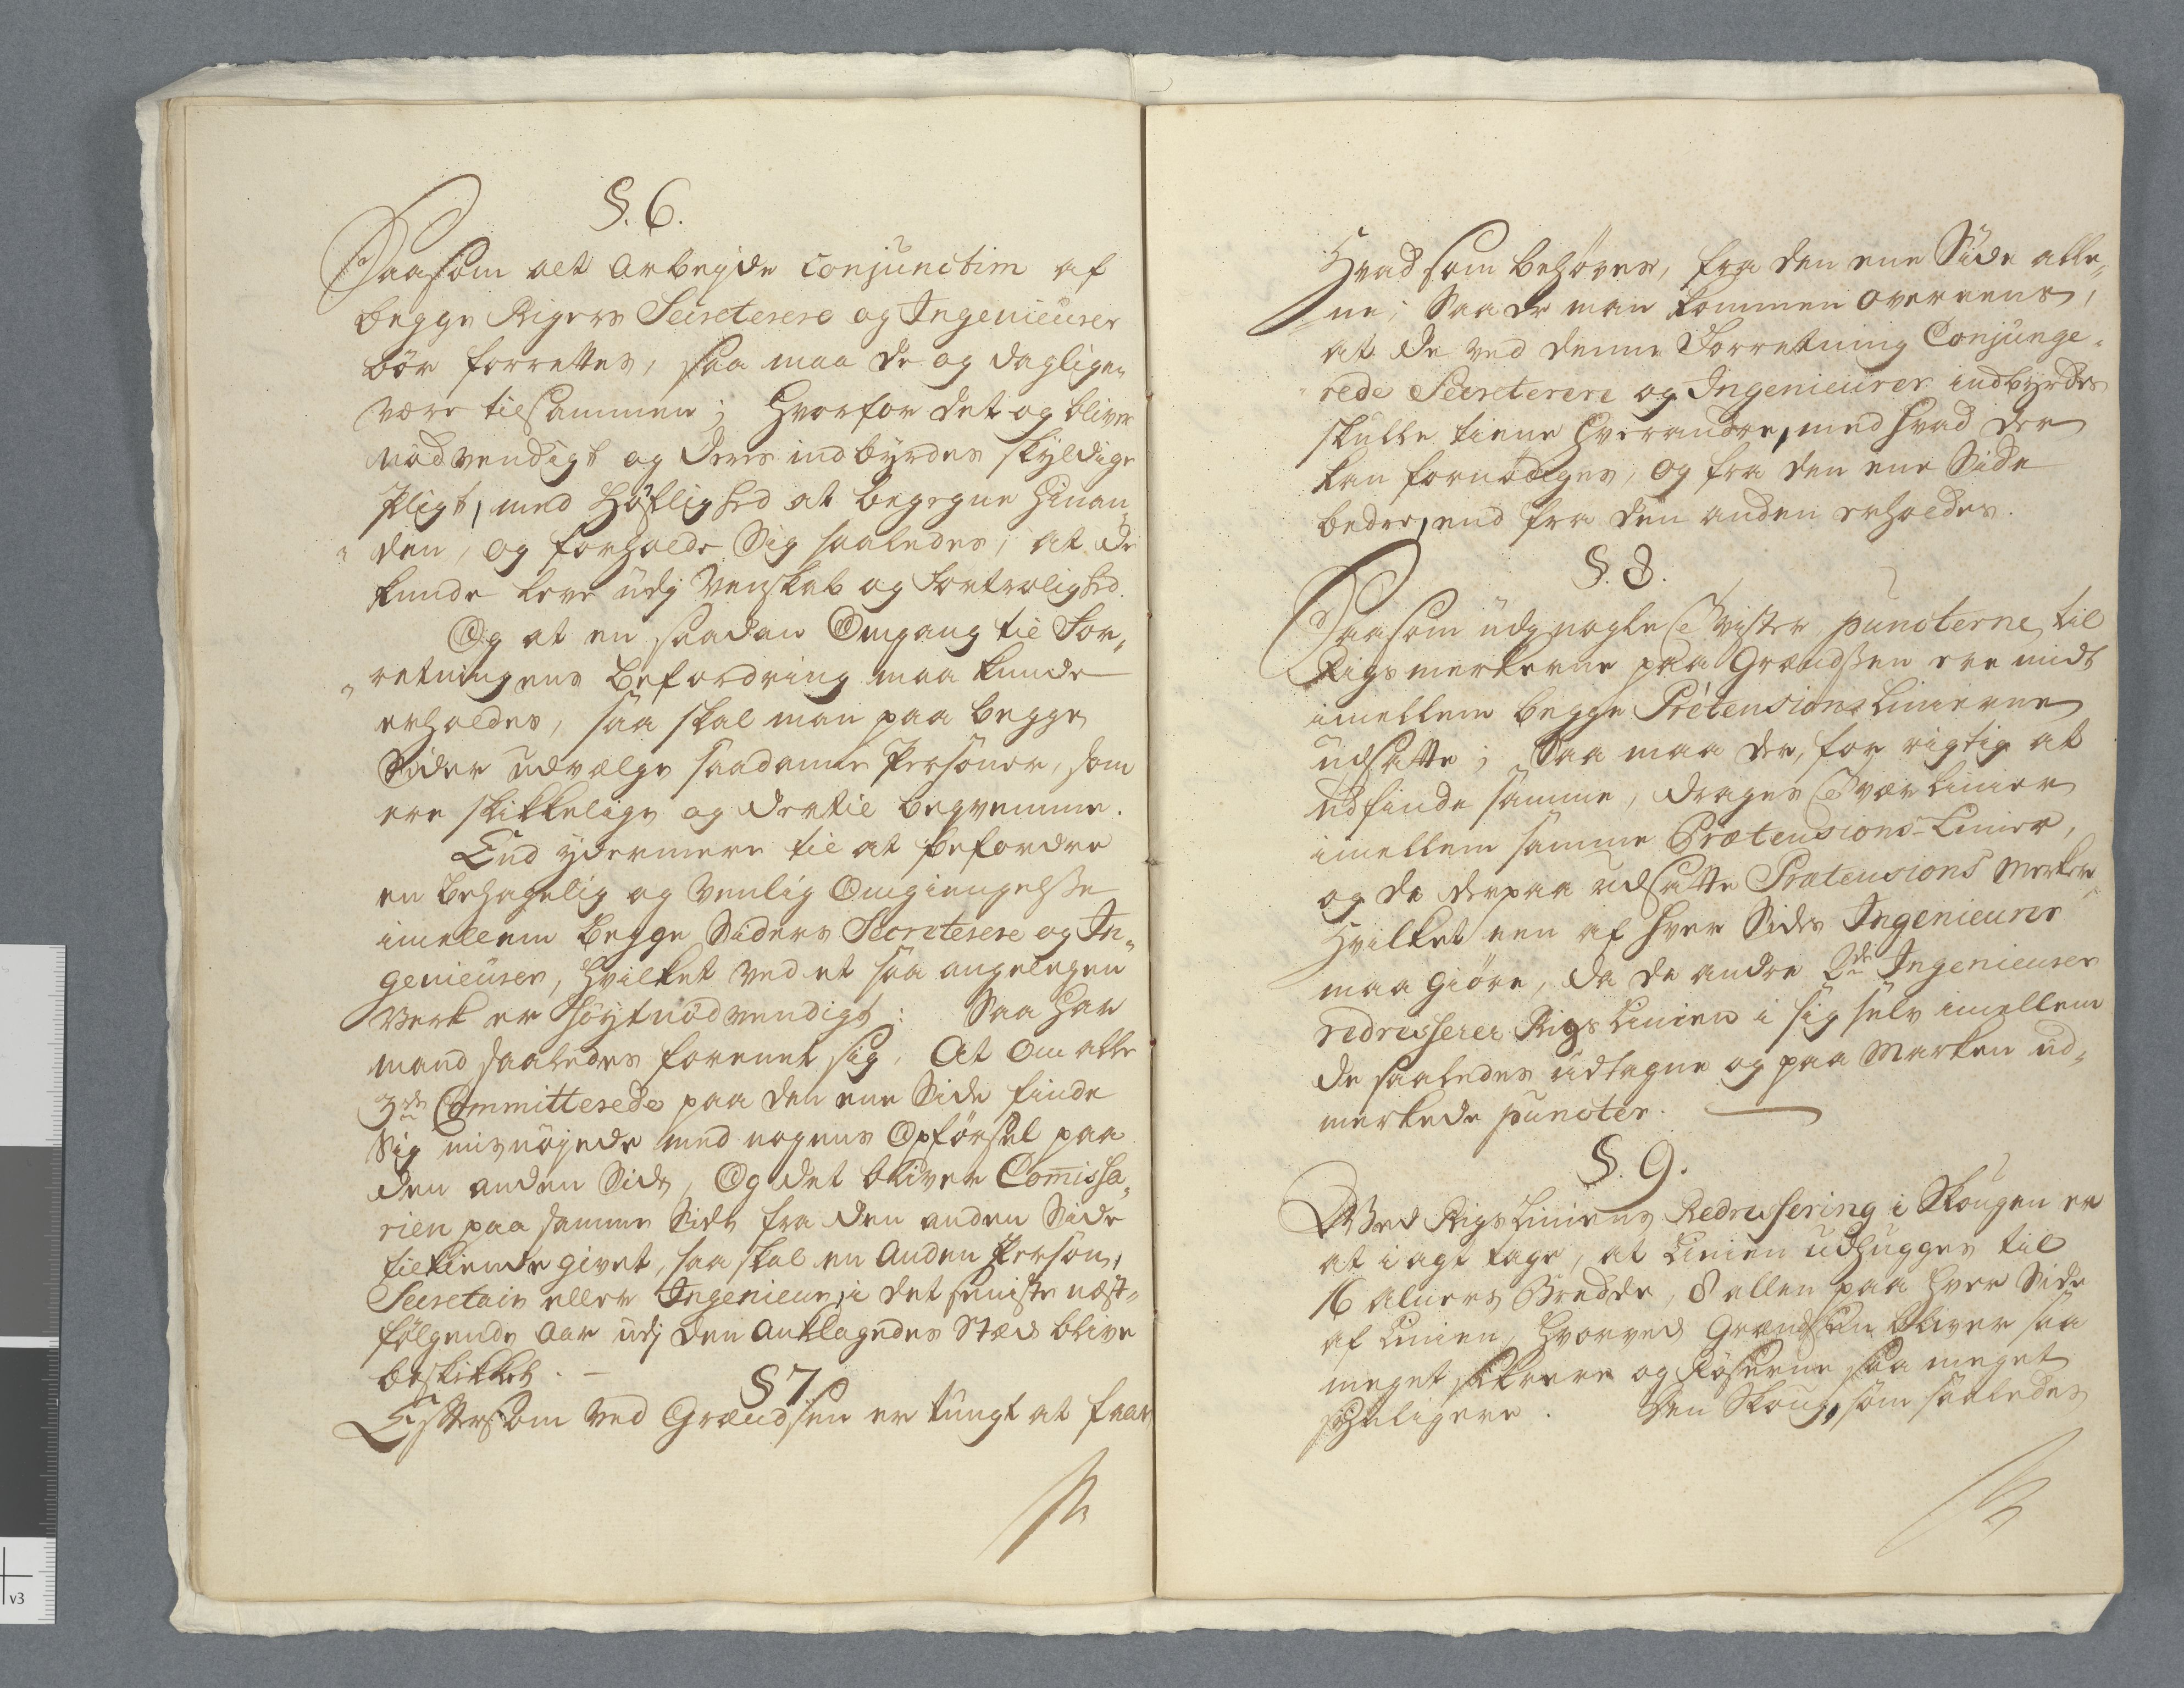 §. 6.
Saasom alt Arbeyde conjunctim af
begge Rigers Secreterere og Ingenieurer
bör forrettes, saa maa de og daglig
være tilsammen; hvorfor det og bliver
nödvendigt og deres indbyrdes skyldige
Pligt, med Höflighed at begegne hinan„
„den, og forholde Sig saaledes, at de
kunde leve udj Venskab og Fortrolighed.
Og at en saadan Omgang til For„
„retningens Befordring maa kunde
erholdes, saa skal man paa begge
Sider udvælge saadanne Personer, som
ere skikkelige og dertil beqvemme.
End ydermere til at befordre
en behagelig og venlig Omgiengelsse
imellem begge Siders Secreterere og In„
genieurer, hvilket ved et saa angelegen
Verk er höyst nödvendigt: Saa har
mand saaledes forenet sig, At om alle
3de Committerede paa den ene Side finde
Sig misnöyede med nogens Opförsel paa
den anden Side, Og det bliver Comissa„
rien paa samme Side fra den anden Side
tilkiende givet, saa skal en Anden Person,
Secretair eller Ingenieur, i det seniste næst„
fölgende Aar udj den Anklagedes Stæd blive
beskikket. —
§ 7.
Eftersom ved Grændsen er tungt at faae
Hvad som behöves, fra den ene Side alle„
„ne; Saa er man kommen overeens,
at de ved denne Forretning Conjunge„
„rede Secreterere og Ingenieurer indbyrdes
skulle tiene hverandre, med hvad der
kan fornödiges, og fra den ene Side
bedre, end fra den anden erholdes.
§. 8.
Saasom udj nogle Tvister puncterne til
Rigsmerkerne paa Grændssen ere midt
imellem begge Prétensions Linierne
udsatte; Saa maa der, for rigtig at
udfinde samme, drages Tvær Linier
imellem samme Prætensions-Linier,
og de derpaa udsatte Prætensions Merker
hvilket een af hver Sides Ingenieurer
maa giöre, da de andre 2de Ingenieurer
redresserer Rigs Linien i sig selv imellem
de saaledes udtagne og paa Marken ud„
merkede puncter.
§. 9.
Ved Rigs Liniens Redressering i Skougen er
at i agt tage, at Linien udhugges til
16 Alners Bredde, 8 allen paa hver Side
af Linien, hvorved Grændsen bliver saa
meget sikrere og Röserne saa meget
synligere. Den Skoug, som saaledes